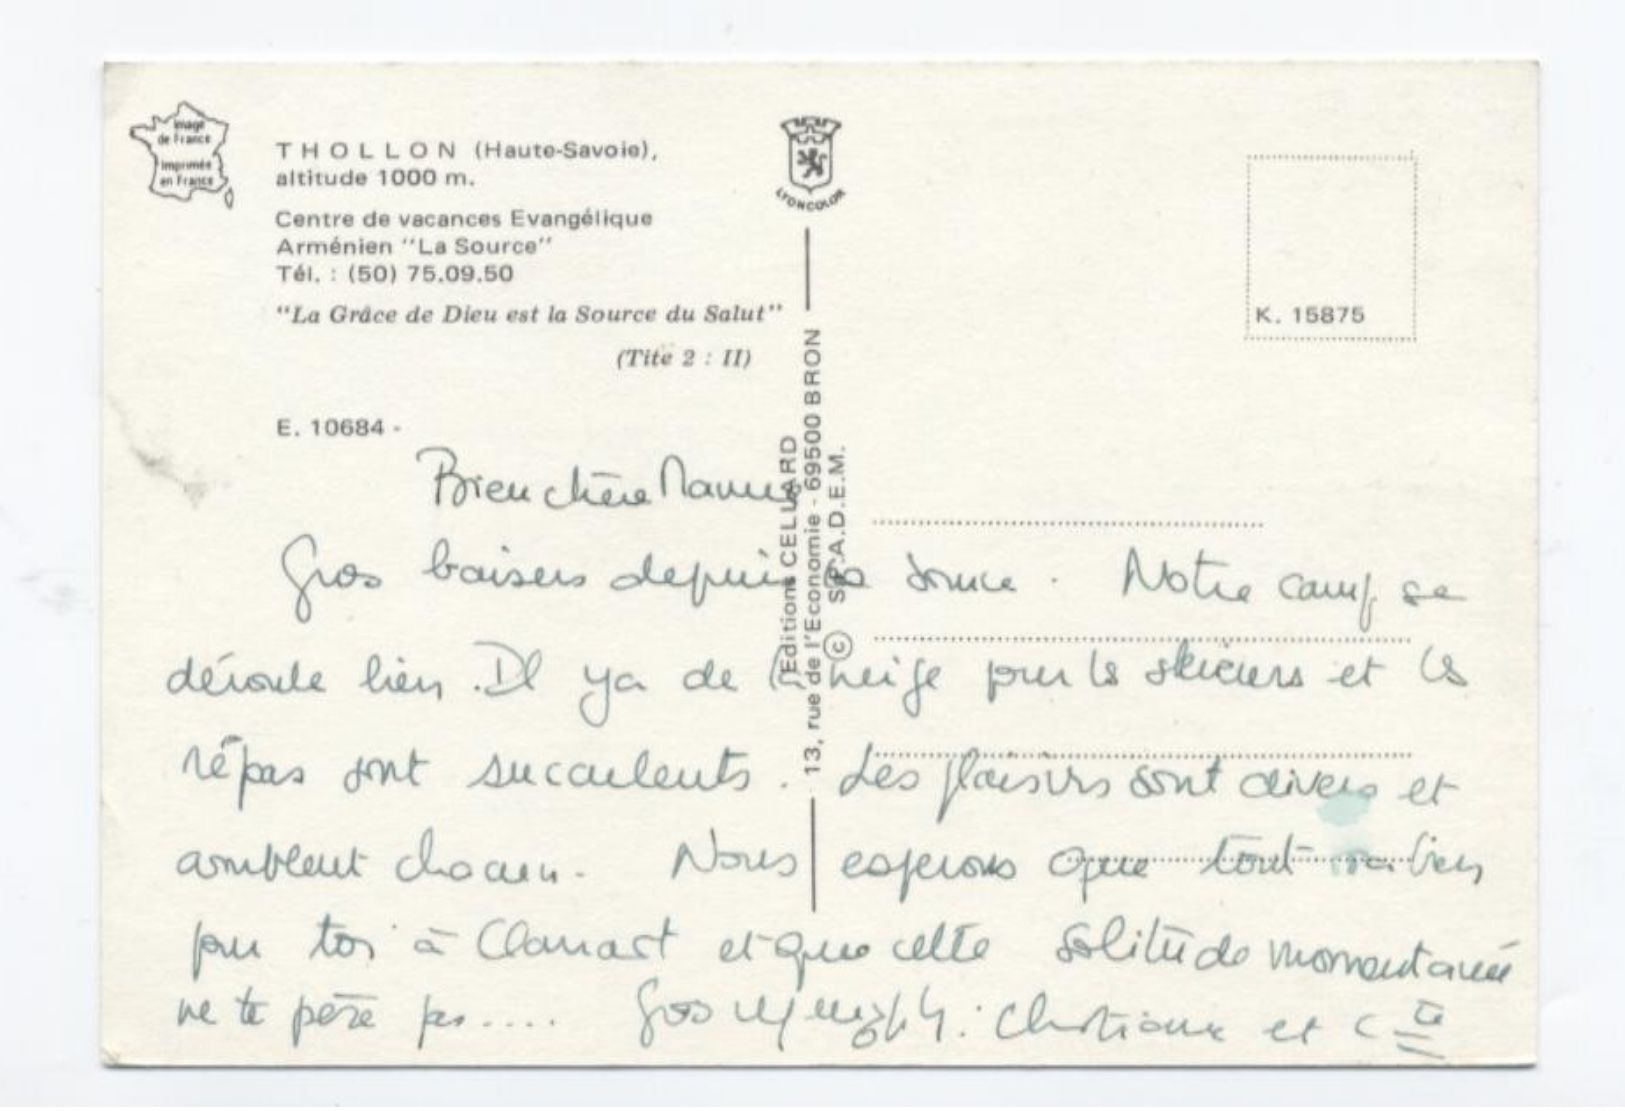 Image
de France
Imprimée
en France
THOLLON (Haute-Savoie),
altitude 1000 m.
Centre de vacances Evangélique
Arménien "La Source"
Tél. : (50) 75.09.50
"La Grâce de Dieu est la Source du Salut"
(Tite 2 : II)
E. 10684 -
LYONCOLOR
Editions CELLARD
13, rue de l'Economie - 69500 BRON
© S.P.A.D.E.M.
K. 15875
Bien chère
Gros baisers depuis la source. Notre camp se
déroule bien. Il y a de la neige pour les skieurs et les
répas sont succulents. Les plaisirs sont divers et
comblent chacun. Nous esperons que tout va bien
pour toi à Clamart et que cette solitude momentanée
ne te pèse pas.... Gros Christiane et Cie